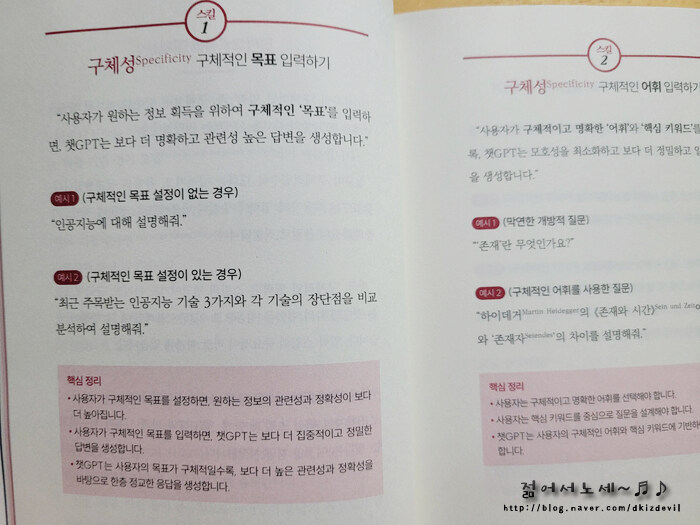 스킬
1
구체성Specificity 구체적인 목표 입력하기
“사용자가 원하는 정보 획득을 위하여 구체적인 ‘목표’를 입력하
면, 챗GPT는 보다 더 명확하고 관련성 높은 답변을 생성합니다.”
예시 1 (구체적인 목표 설정이 없는 경우)
“인공지능에 대해 설명해줘.”
예시 2 (구체적인 목표 설정이 있는 경우)
“최근 주목받는 인공지능 기술 3가지와 각 기술의 장단점을 비교
분석하여 설명해줘.”
핵심 정리
• 사용자가 구체적인 목표를 설정하면, 원하는 정보의 관련성과 정확성이 보다
더 높아집니다.
• 사용자가 구체적인 목표를 입력하면, 챗GPT는 보다 더 집중적이고 정밀한
답변을 생성합니다.
• 챗GPT는 사용자의 목표가 구체적일수록, 보다 더 높은 관련성과 정확성을
바탕으로 한층 정교한 응답을 생성합니다.
스킬
2
구체성Specificity 구체적인 어휘 입력하기
“사용자가 구체적이고 명확한 ‘어휘’와 ‘핵심 키워드’를
록, 챗GPT는 모호성을 최소화하고 보다 더 정밀하고
을 생성합니다.”
예시 1 (막연한 개방적 질문)
“‘존재’란 무엇인가요?”
예시 2 (구체적인 어휘를 사용한 질문)
“하이데거Martin Heidegger의 《존재와 시간》Sein und Zeit
와 ‘존재자Seiendes’의 차이를 설명해줘.”
핵심 정리
• 사용자는 구체적이고 명확한 어휘를 선택해야 합니다.
• 사용자는 핵심 키워드를 중심으로 질문을 설계해야 합니다.
• 챗GPT는 사용자의 구체적인 어휘와 핵심 키워드에 기반하
합니다.
젊어서노세~♬♪
http://blog.naver.com/dkizdevil